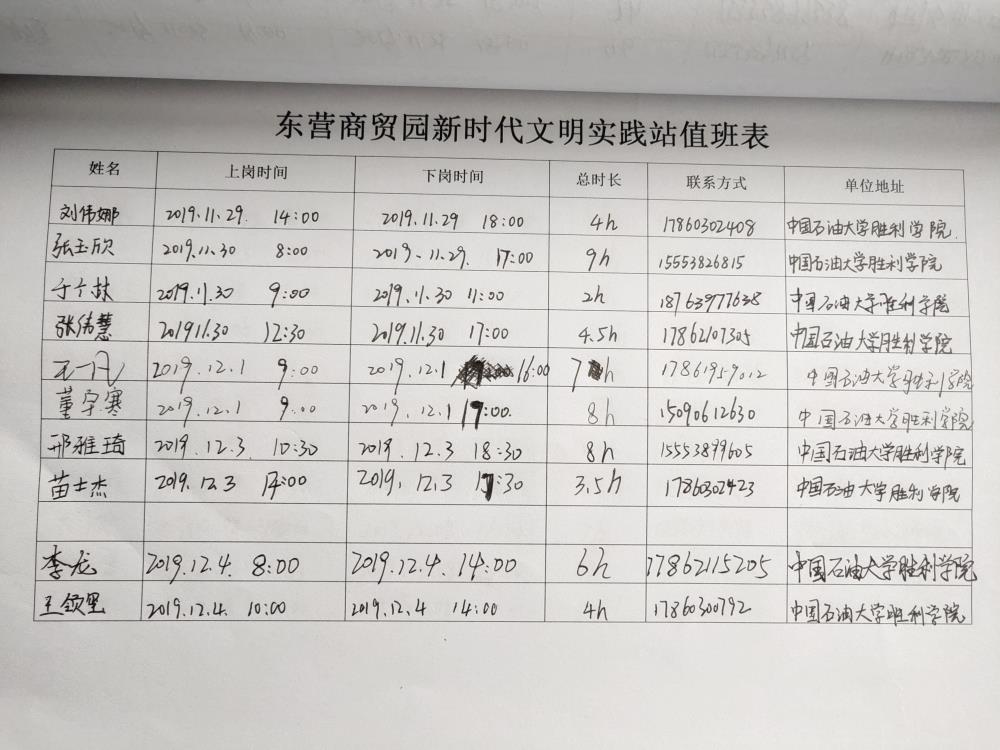 东营商贸园新时代文明实践站值班表
姓名 上岗时间 下岗时间 总时长 联系方式 单位地址
刘伟娜 2019.11.29. 14:00 2019.11.29 18:00 4h 17860302408 中国石油大学胜利学院.
张玉欣 2019.11.30 8:00 2019.11.29. 17:00 9h 15553826815 中国石油大学胜利学院
2019.11.30 9:00 2019.11.30 11:00 2h 18763977638 中国石油大学胜利学院
张伟慧 2019.11.30 12:30 2019.11.30 17:00 4.5h 17862107305 中国石油大学胜利学院
2019.12.1 9:00 2019.12.1 16:00 7h 17861959012 中国石油大学胜利学院
董宇寒 2019.12.1 9:00 2019.12.1 17:00. 8h 15090612630 中国石油大学胜利学院
邢雅琦 2019.12.3 10:30 2019.12.3 18:30 8h 15553899605 中国石油大学胜利学院
苗士杰 2019.12.3 14:00 2019.12.3 17:30 3.5h 17860302423 中国石油大学胜利学院
李龙 2019.12.4. 8:00 2019.12.4. 14:00 6h 17862115205 中国石油大学胜利学院
2019.12.4. 10:00 2019.12.4 14:00 4h 17860300792 中国石油大学胜利学院